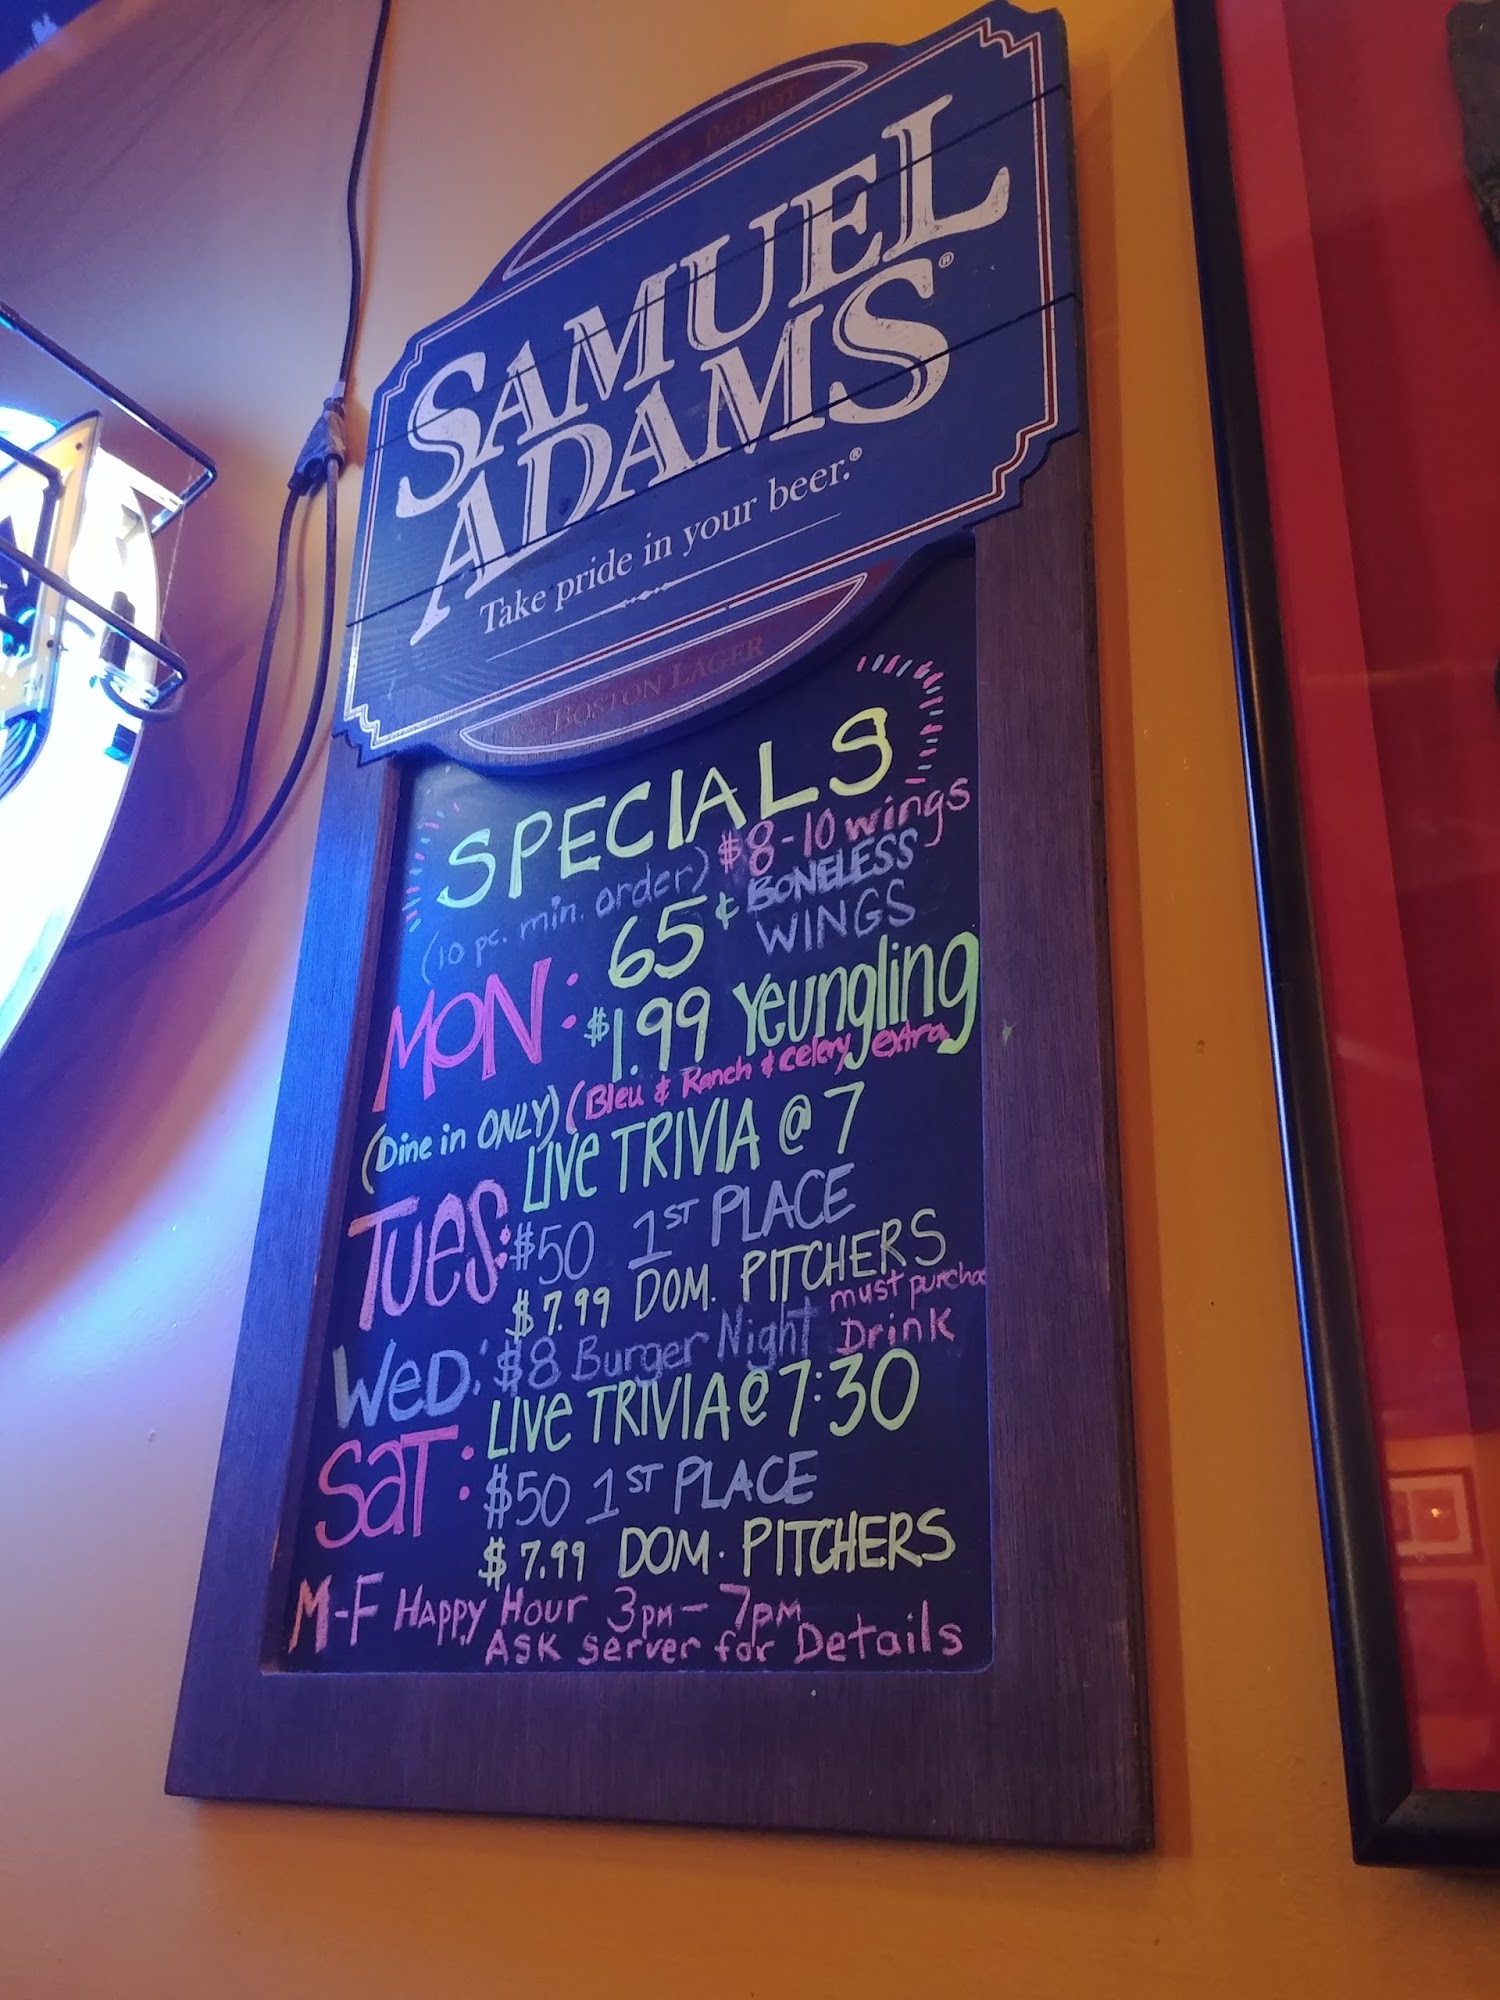 BREWER & PATRIOT
SAMUEL
ADAMS®
Take pride in your beer.®
BOSTON LAGER
SPECIALS
(10 pc. min. order) $8-10 wings
MON: 65¢ BONELESS
WINGS
$1.99 Yeungling
(Dine in ONLY) (Bleu & Ranch & celery extra
TUES: LIVE TRIVIA @ 7
$50 1ST PLACE
$7.99 DOM. PITCHERS
WED: $8 Burger Night must purchase
Drink
SAT: LIVE TRIVIA @ 7:30
$50 1ST PLACE
$7.99 DOM. PITCHERS
M-F Happy Hour 3pm - 7pm
Ask server for Details